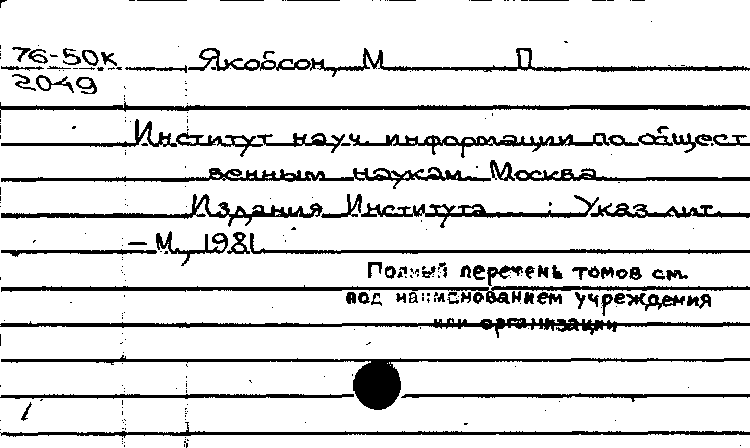 76-50к Якобсон, М П
2049
Институт науч. информации по общест
венным наукам. Москва
Издания Института : Указ. лит.
– М., 1981.
Полный перечень томов см.
под наименованием учреждения
или организации
1